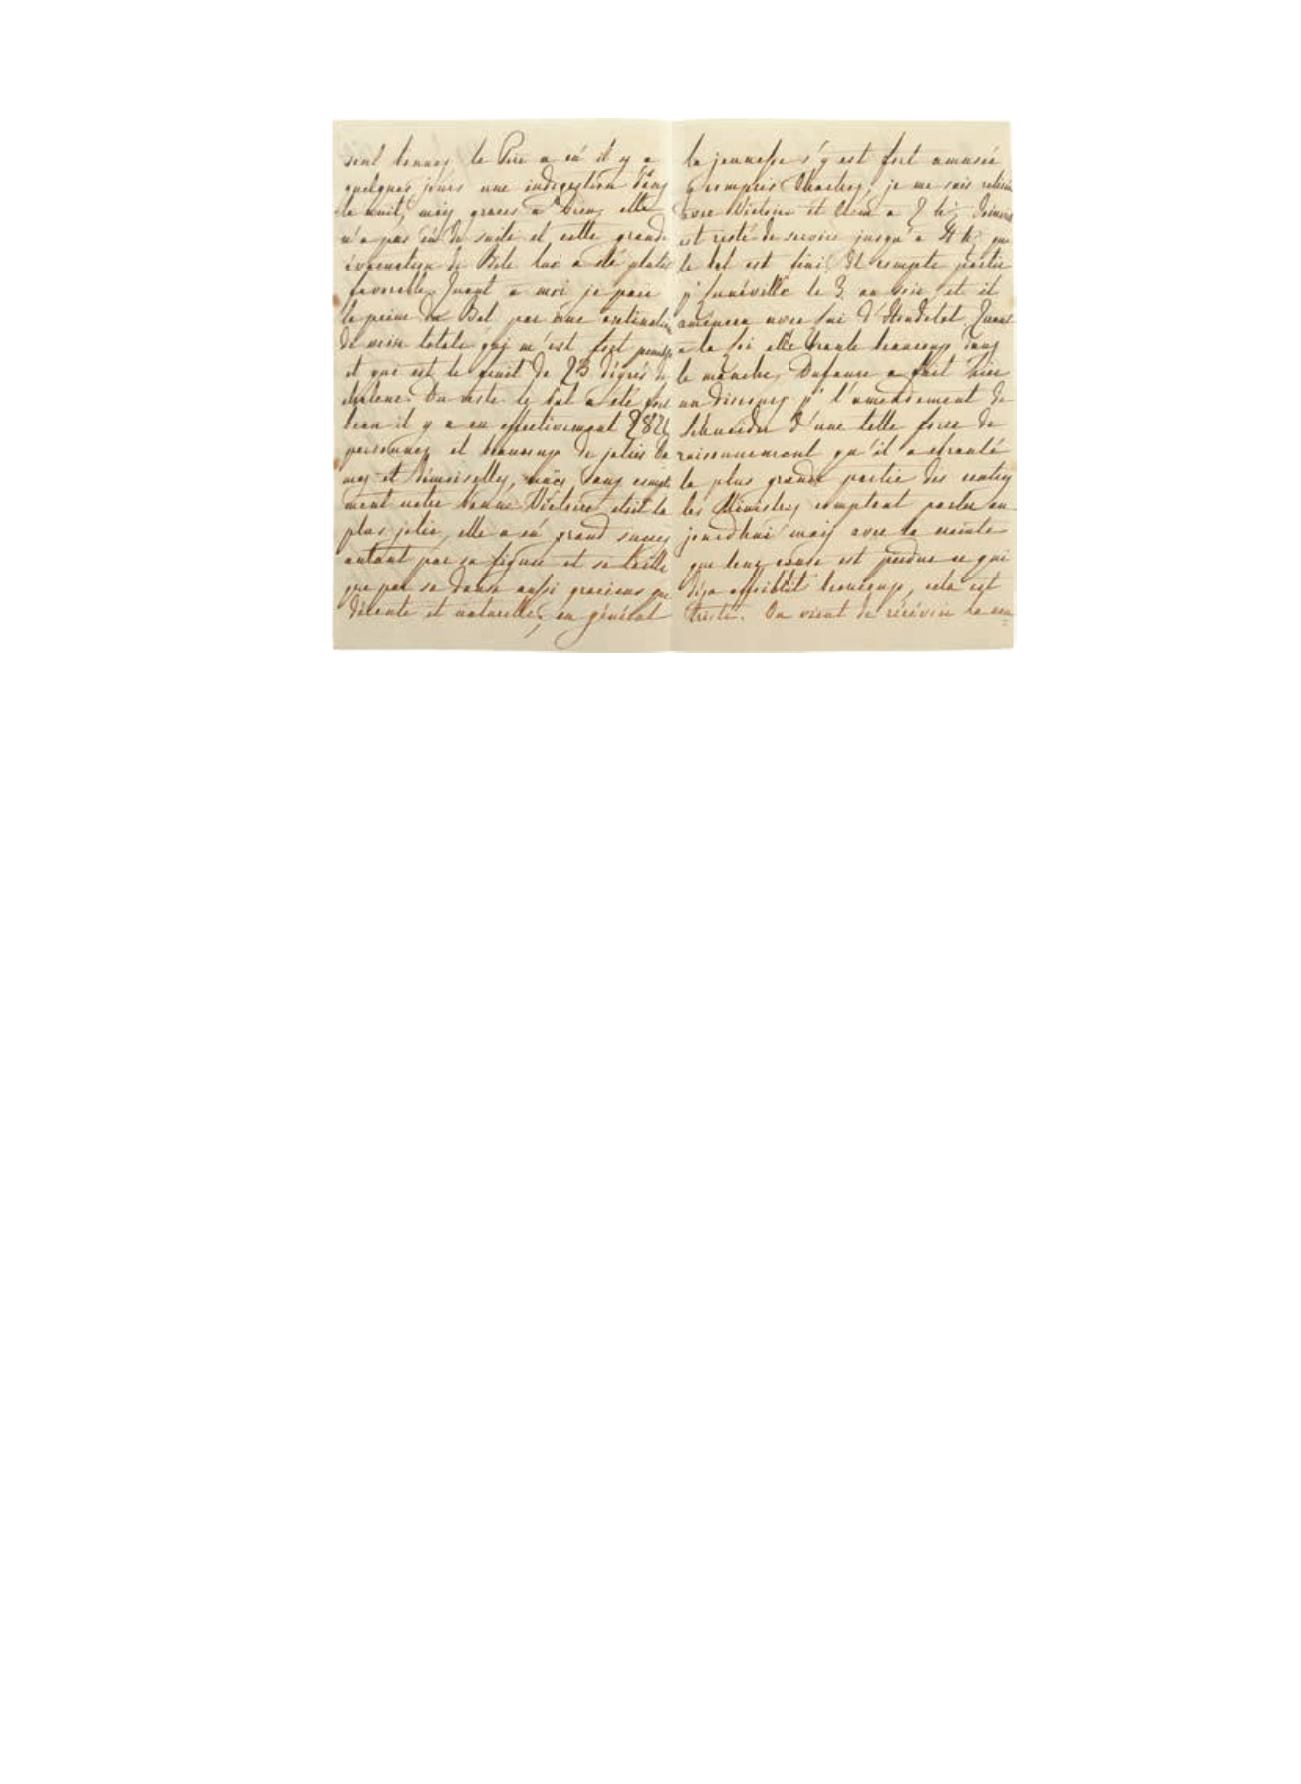 sont bonnes le Père a eû il y a
quelques jours une indigestion dans
la nuit, mais graces a Dieu, elle
n'a pas eû de suite et cette grande
évacuation de Bile lui a été plutot
favorable. Quant a moi je paie
la peine du Bal par une extinction
de voix totale qui m'est fort penible
et que est le fruit de 23 dégrés de
chaleur. Du reste le bal a été fort
beau il y a eu effectivement
personnes et beaucoup de jolies Da
mes et Démoiselles, mais, sans
ment notre bonne Victoire étoit la
plus jolie, elle a eû grand succes
autant par sa figure et sa taille
que par sa danse aussi gracieuse que
décente et naturelle; en général
la jeunesse s'y est fort amusée
y compris Chartres; je me suis retirée
avec Victoire et Clem a 2 h
est resté de service jusqu'a 4 h que
le bal est fini. Il compte partir
p^r Lunéville le 3 au soir et il
amenera avec lui d'Houdetot. Quant
a la loi elle branle beaucoup dans
le manche, Dufaure a fait hier
un discours p^r l'amendement de
Schneider d'une telle force de
raisonnement qu'il a ebranlé
la plus grande partie des centres
les Ministres comptent parler au
jourdhui mais avec la crainte
que leur cause est perdue ce qui
déja affoiblit beaucoup, cela est
triste. On vient de récévoir la nou